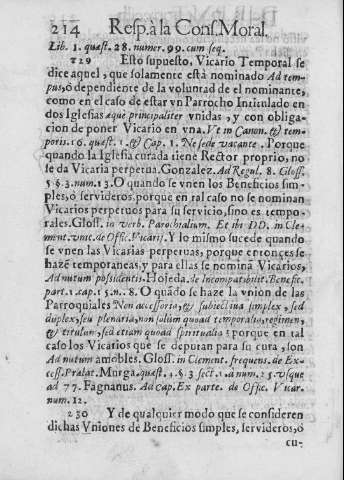 214 Resp. à la Cons. Moral.
Lib. 1. quæst. 28. numer. 99. cum seq.
229 Esto supuesto, Vicario Temporal se
dice aquel, que solamente està nominado Ad tem-
pus, ò dependiente de la voluntad de el nominante,
como en el caso de estar vn Parrocho Intitulado en
dos Iglesias æque principaliter vnidas, y con obliga-
cion de poner Vicario en vna. Vt in Canon. & tem-
poris. 16. quæst. 1. & Cap. 1. Ne sede vacante. Porque
quando la Iglesia curada tiene Rector proprio, no
se da Vicaria perpetua. Gonzalez. Ad Regul. 8. Gloss.
5. §. 3. num. 13. O quando se vnen los Beneficios sim-
ples, ò servideros, porque en tal caso no se nominan
Vicarios perpetuos para su servicio, sino es tempo-
rales. Gloss. in verb. Parochialium. Et ibi DD. in Cle-
ment. vnic. de Offic. Vicarij. Y lo mismo sucede quando
se vnen las Vicarias perpetuas, porque entonces se
hazẽ temporaneas, y para ellas se nominã Vicarios,
Ad nutum possidentis. Hojeda. de Incompatibilit. Benefic.
part. 1. cap. 15. n. 8. O quãdo se haze la vnion de las
Parroquiales Non accessoria, & subiectiva simplex, sed
duplex, seu plenaria, non solum quoad temporalia, regimen,
& titulum, sed etiam quoad spiritualia: porque en tal
caso los Vicarios que se deputan para su cura, son
Ad nutum amobles. Gloss. in Clement. frequens. de Ex-
cess. Prælat. Murga. quæst. 1. §. 3. sect. 1. à num. 25. vsque
ad 77. Fagnanus. Ad Cap. Ex parte. de Offic. Vicar.
num. 12.
230 Y de qualquier modo que se consideren
dichas Vniones de Beneficios simples, servideros, ò
cu-